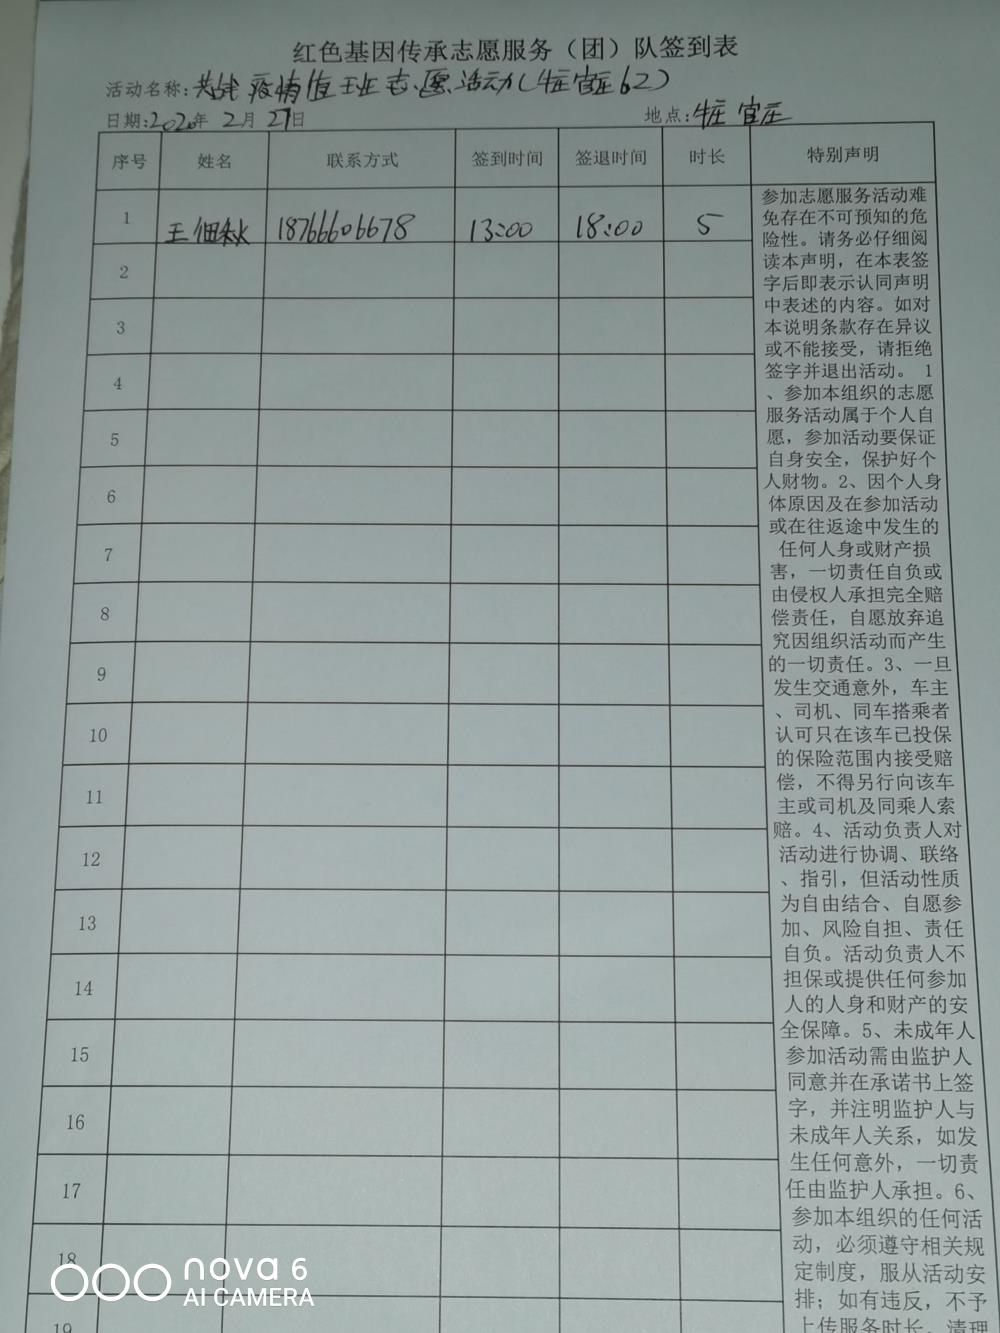 红色基因传承志愿服务（团）队签到表
活动名称:共战疫情值班志愿活动(牛庄官庄62)
日期:2020年 2月 27日 地点:牛庄 官庄
序号 姓名 联系方式 签到时间 签退时间 时长 特别声明
1 王 秋 18766606678 13:00 18:00 5
2
3
4
5
6
7
8
9
10
11
12
13
14
15
16
17
18
19
参加志愿服务活动难
免存在不可预知的危
险性。请务必仔细阅
读本声明，在本表签
字后即表示认同声明
中表述的内容。如对
本说明条款存在异议
或不能接受，请拒绝
签字并退出活动。 1
、参加本组织的志愿
服务活动属于个人自
愿，参加活动要保证
自身安全，保护好个
人财物。2、因个人身
体原因及在参加活动
或在往返途中发生的
任何人身或财产损
害，一切责任自负或
由侵权人承担完全赔
偿责任，自愿放弃追
究因组织活动而产生
的一切责任。3、一旦
发生交通意外，车主
、司机、同车搭乘者
认可只在该车已投保
的保险范围内接受赔
偿，不得另行向该车
主或司机及同乘人索
赔。4、活动负责人对
活动进行协调、联络
、指引，但活动性质
为自由结合、自愿参
加、风险自担、责任
自负。活动负责人不
担保或提供任何参加
人的人身和财产的安
全保障。5、未成年人
参加活动需由监护人
同意并在承诺书上签
字，并注明监护人与
未成年人关系，如发
生任何意外，一切责
任由监护人承担。6、
参加本组织的任何活
动，必须遵守相关规
定制度，服从活动安
排；如有违反，不予
上传服务时长，清理
nova 6
AI CAMERA